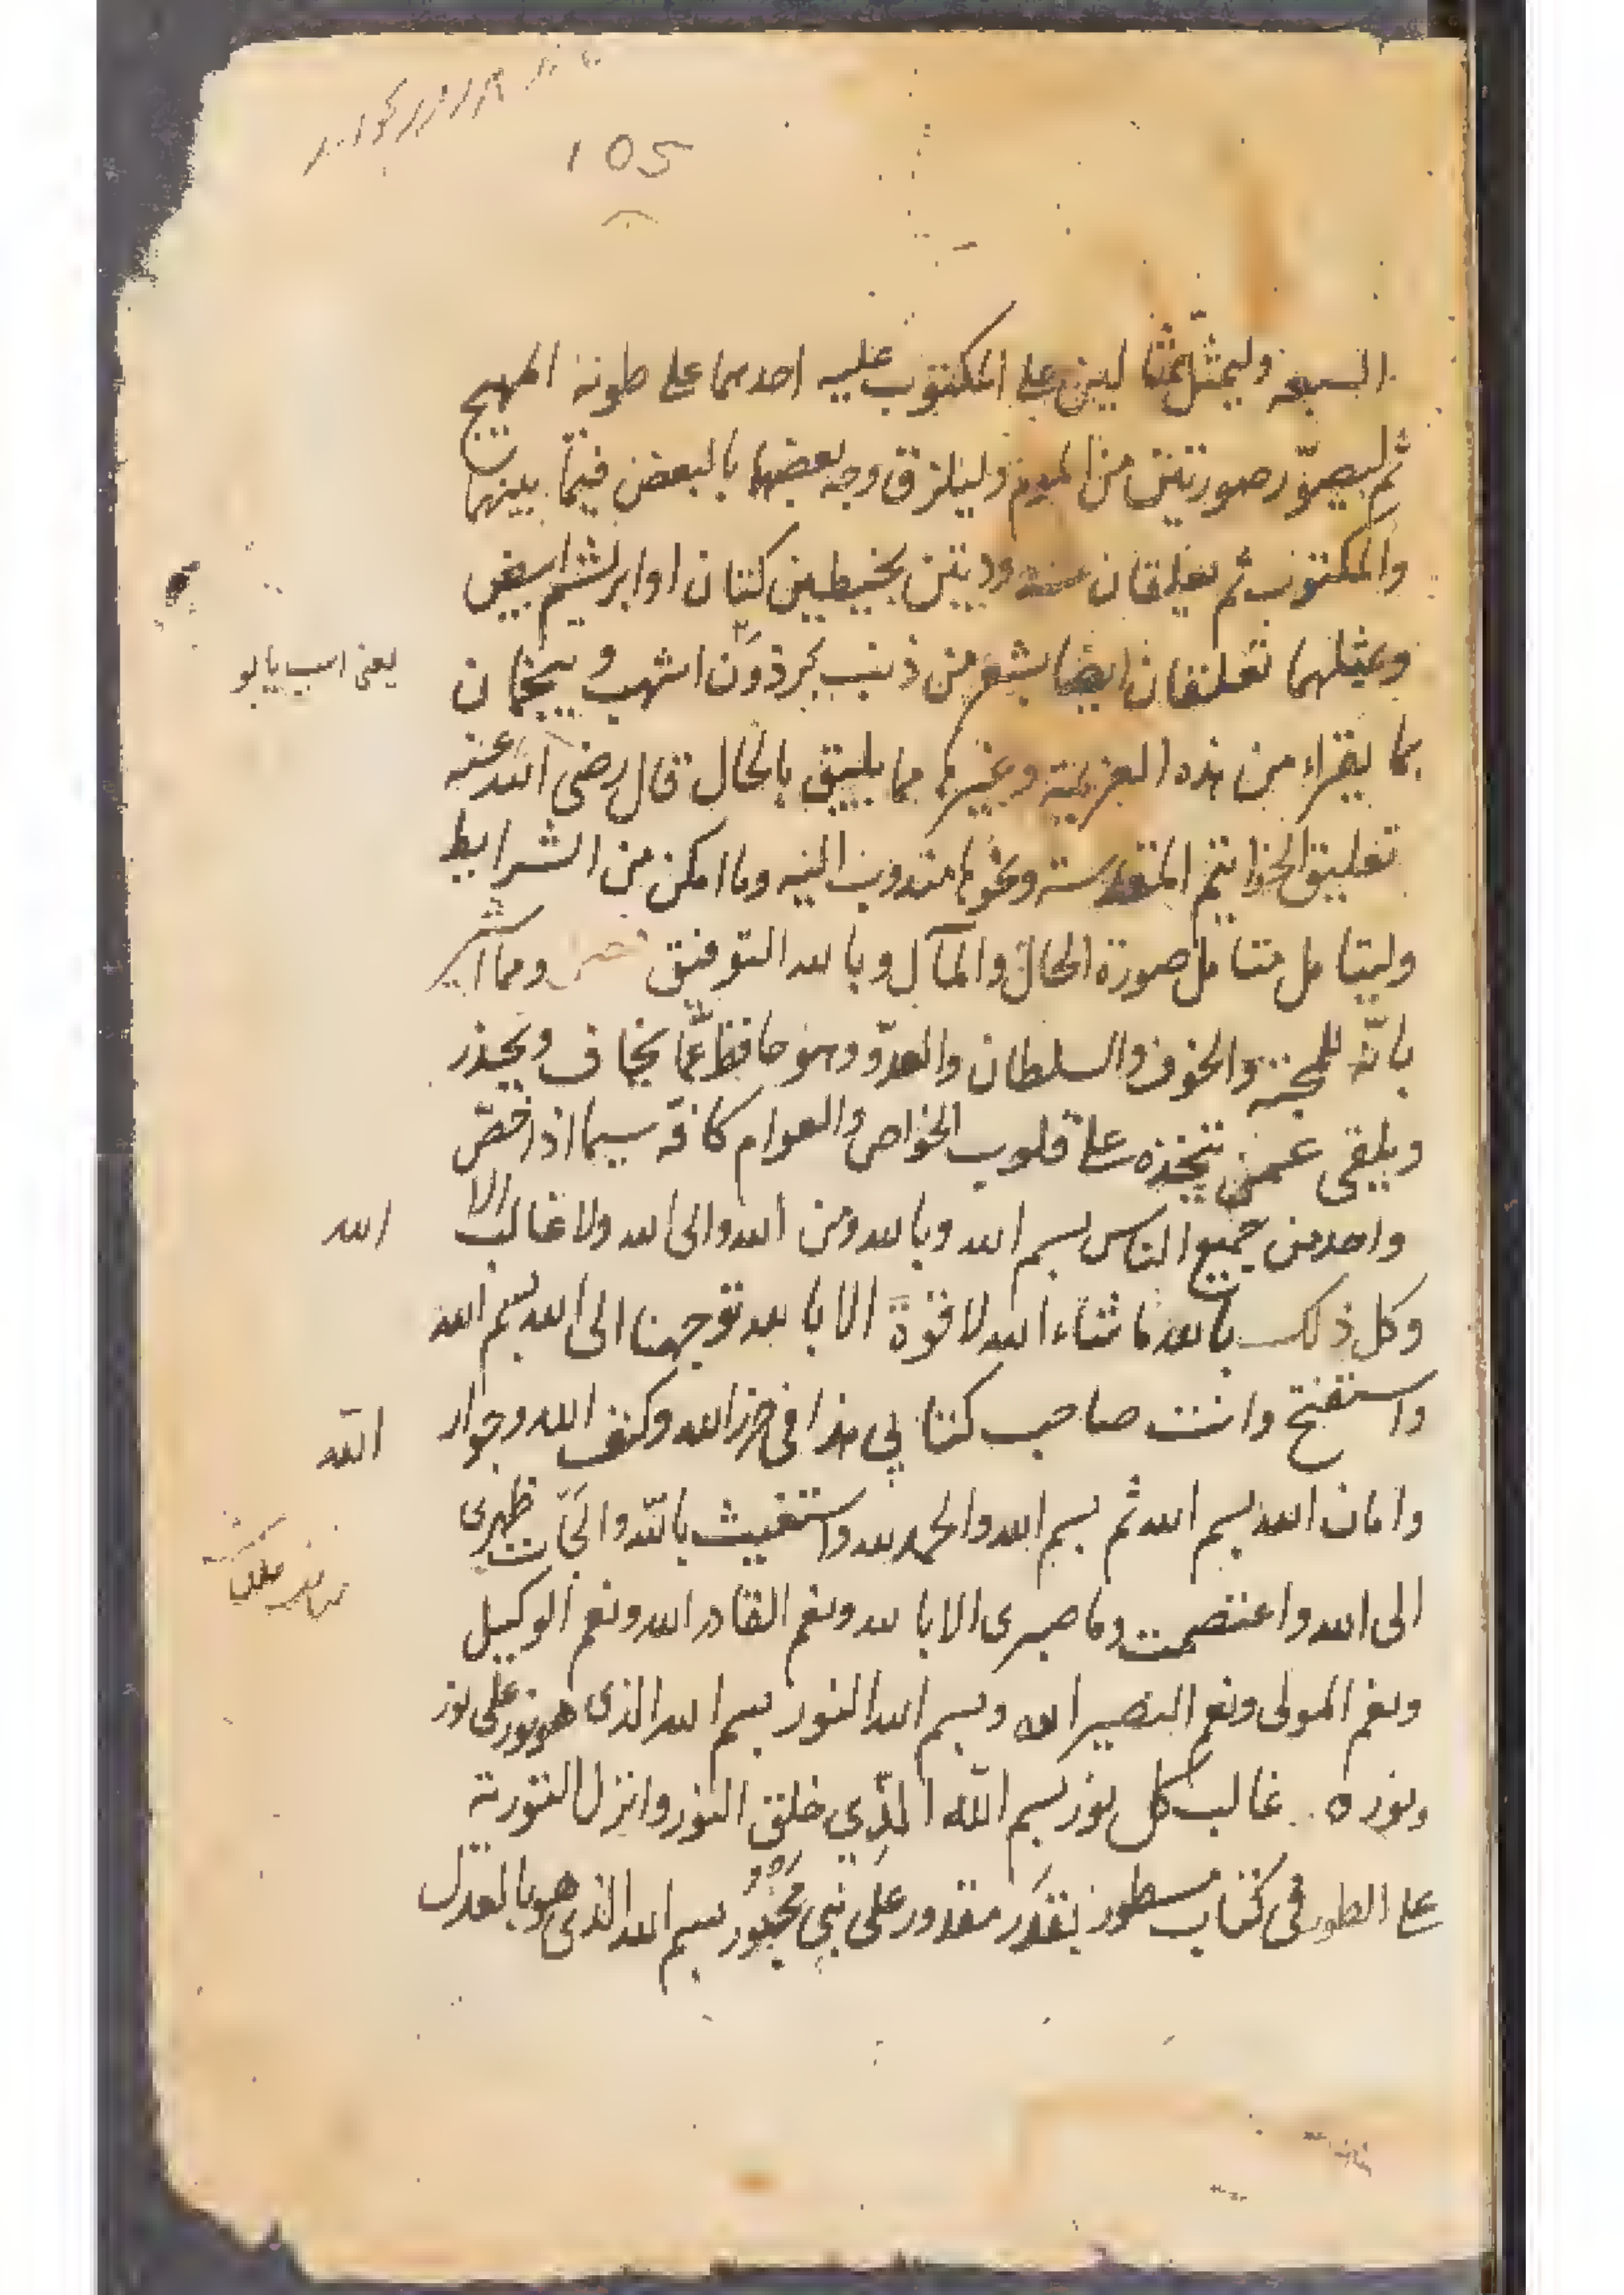 105
السبعة وليمثل تمثالين على المكتوب عليه احدهما على طونة المهيج
ثم ليصوّر صورتين من الموم وليلزق وجه بعضها بالبعض فيما بينهما
والمكتوب ثم يعلقان منه بخيطين كتان او ابريشم ابيض
ومثلهما تعلقان ايضا بشعر من ذنب برذون اشهب و
يعنى اسب يابو
بما يقراء من هذه العزيمة وغيرها مما يليق بالحال قال رضى الله عنه
تعليق الخواتيم المقدسة ونحوها مندوب اليه وما امكن من الشرايط
وليتامل متامل صورة الحال والمآل وبالله التوفيق ومما اشير
بانّه للمحبة والخوف والسلطان والعدوّ وهو حافظ عمّا يخاف ويحذر
ويلقى عمن يتخذه على قلوب الخواص والعوام كافة سيما اذا خصّ
واحد من جميع الناس بسم الله وبالله ومن الله والى الله ولا غالب الا
الله
وكل ذلك بالله ما شاء الله لا قوّة الا بالله توجهنا الى الله بسم الله
واستفتح وانت صاحب كتابي هذا في حرز الله وكنف الله وجوار
الله
وامان الله بسم الله ثم بسم الله والحمد لله واستغيث بالله والجأت ظهرى
الى الله واعتصمت وما صبرى الا بالله ونعم القادر الله ونعم الوكيل
ونعم المولى ونعم النصير الله وبسم الله النور بسم الله الذى هو نور على نور
ونوره غالب كل نور بسم الله الذي خلق النور وانزل التورية
على الطور في كتاب مسطور بقدر مقدور على نبي محبور بسم الله الذى هو بالعدل